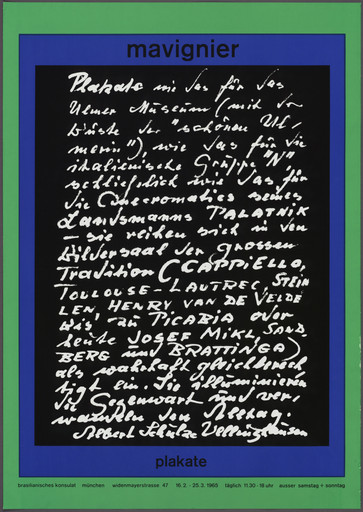 mavignier
Plakate wie das für das
Ulmer Museum (mit der
Büste der "schönen Ul,
merin"), wie das für die
italienische Gruppe "N"
schließlich wie das für
die Cinecromatics seines
Landsmanns PALATNIK
— sie reihen sich in den
Bildersaal der grossen
Tradition (CAPPIELLO,
TOULOUSE-LAUTREC, STEIN
LEN, HENRY VAN DE VELDE
bis zu PICABIA oder
heute JOSEF MIKL, SAND,
BERG und BRATTINGA)
als wahrhaft gleichberech
tigt ein. Sie illuminieren
die Gegenwart und ver,
wandeln den Alltag.
Albert Schulze Vellinghausen
plakate
brasilianisches konsulat münchen widenmayerstrasse 47 16.3. - 25.3.1965 täglich 11.30-18 uhr ausser samstag + sonntag